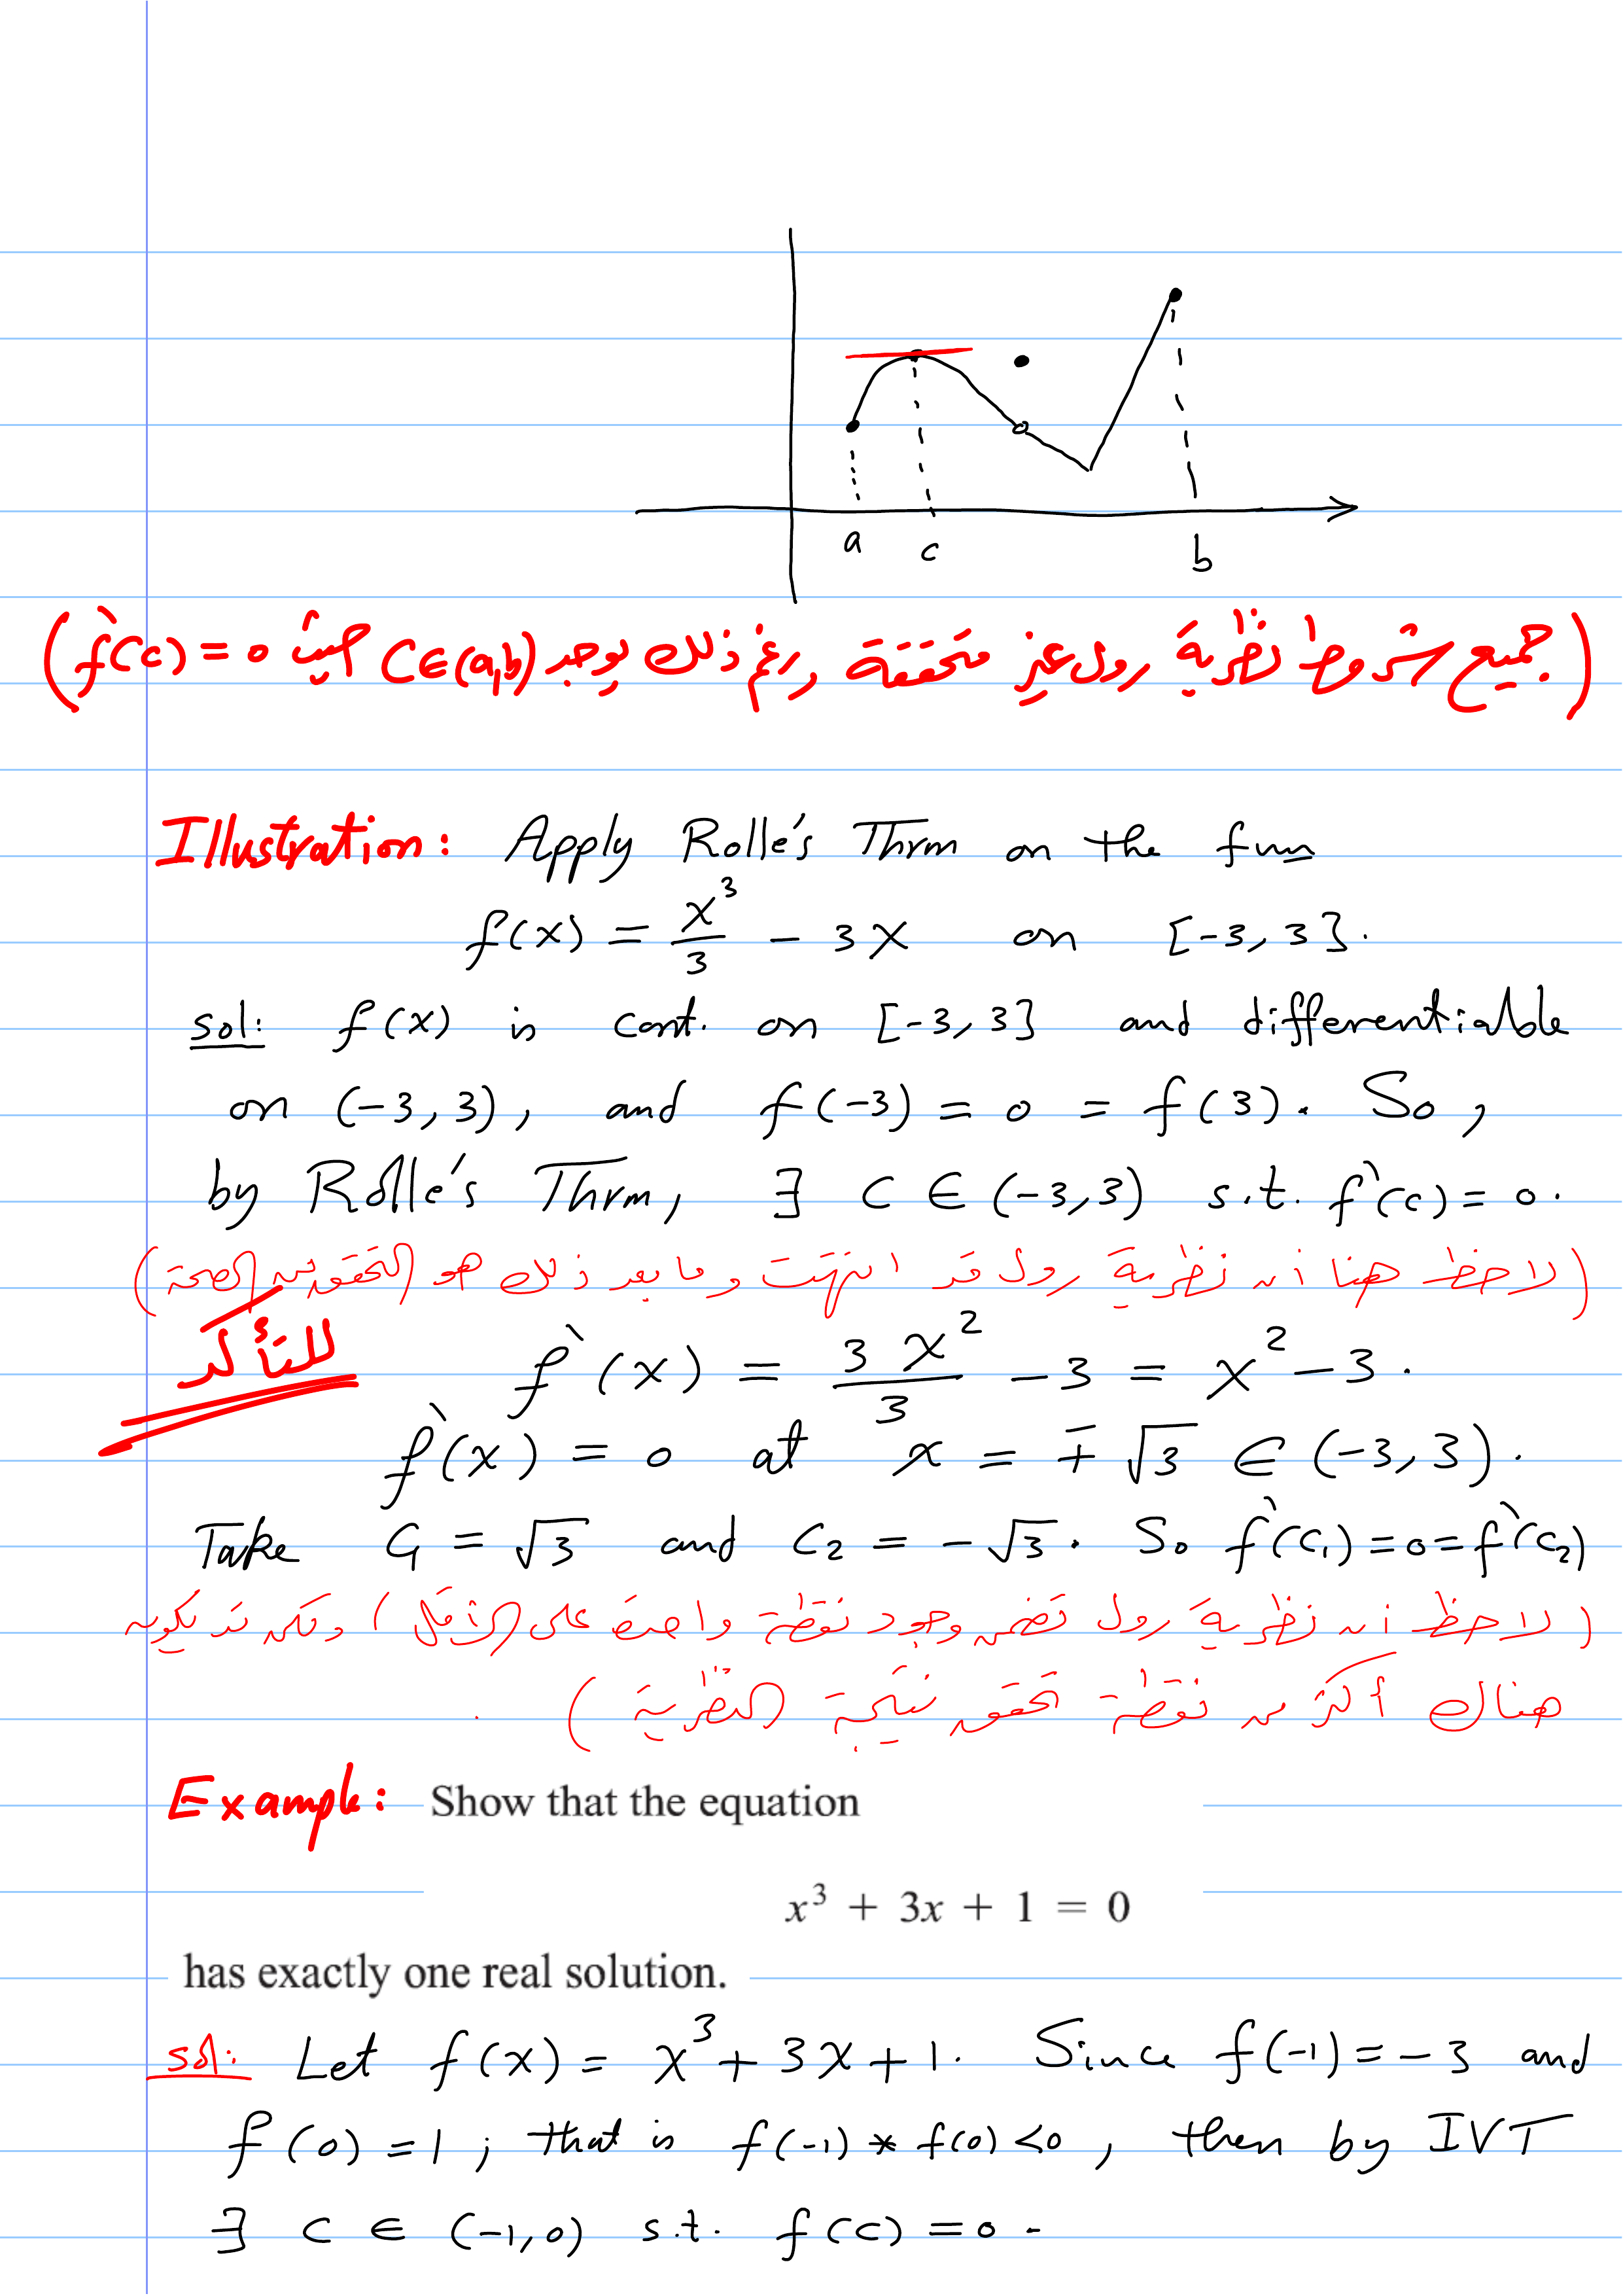 a c b
(جميع شروط نظرية رول غير متحققة ورغم ذلك يوجد C∈(a,b) حيث f`(c) = 0)
Illustration: Apply Rolle's Thrm on the fun
f(x) = x³/3 - 3x on [-3, 3].
sol: f(x) is cont. on [-3, 3] and differentiable
on (-3, 3), and f(-3) = 0 = f(3). So,
by Rolle's Thrm, ∃ C ∈ (-3, 3) s.t. f`(c) = 0.
(لاحظ هنا أن نظرية رول قد انتهت وما بعد ذلك هو التحقق من الصحة)
للتأكد
f`(x) = 3x²/3 - 3 = x² - 3.
f`(x) = 0 at x = ∓√3 ∈ (-3, 3).
Take C₁ = √3 and C₂ = -√3. So f`(C₁) = 0 = f`(C₂)
(لاحظ أن نظرية رول تضمن وجود نقطة واحدة على الأقل) ولكن قد يكون
هناك أكثر من نقطة تحقق نتيجة النظرية) .
Example: Show that the equation
x³ + 3x + 1 = 0
has exactly one real solution.
sol: Let f(x) = x³ + 3x + 1. Since f(-1) = -3 and
f(0) = 1; that is f(-1) * f(0) < 0, then by IVT
∃ c ∈ (-1, 0) s.t. f(c) = 0.